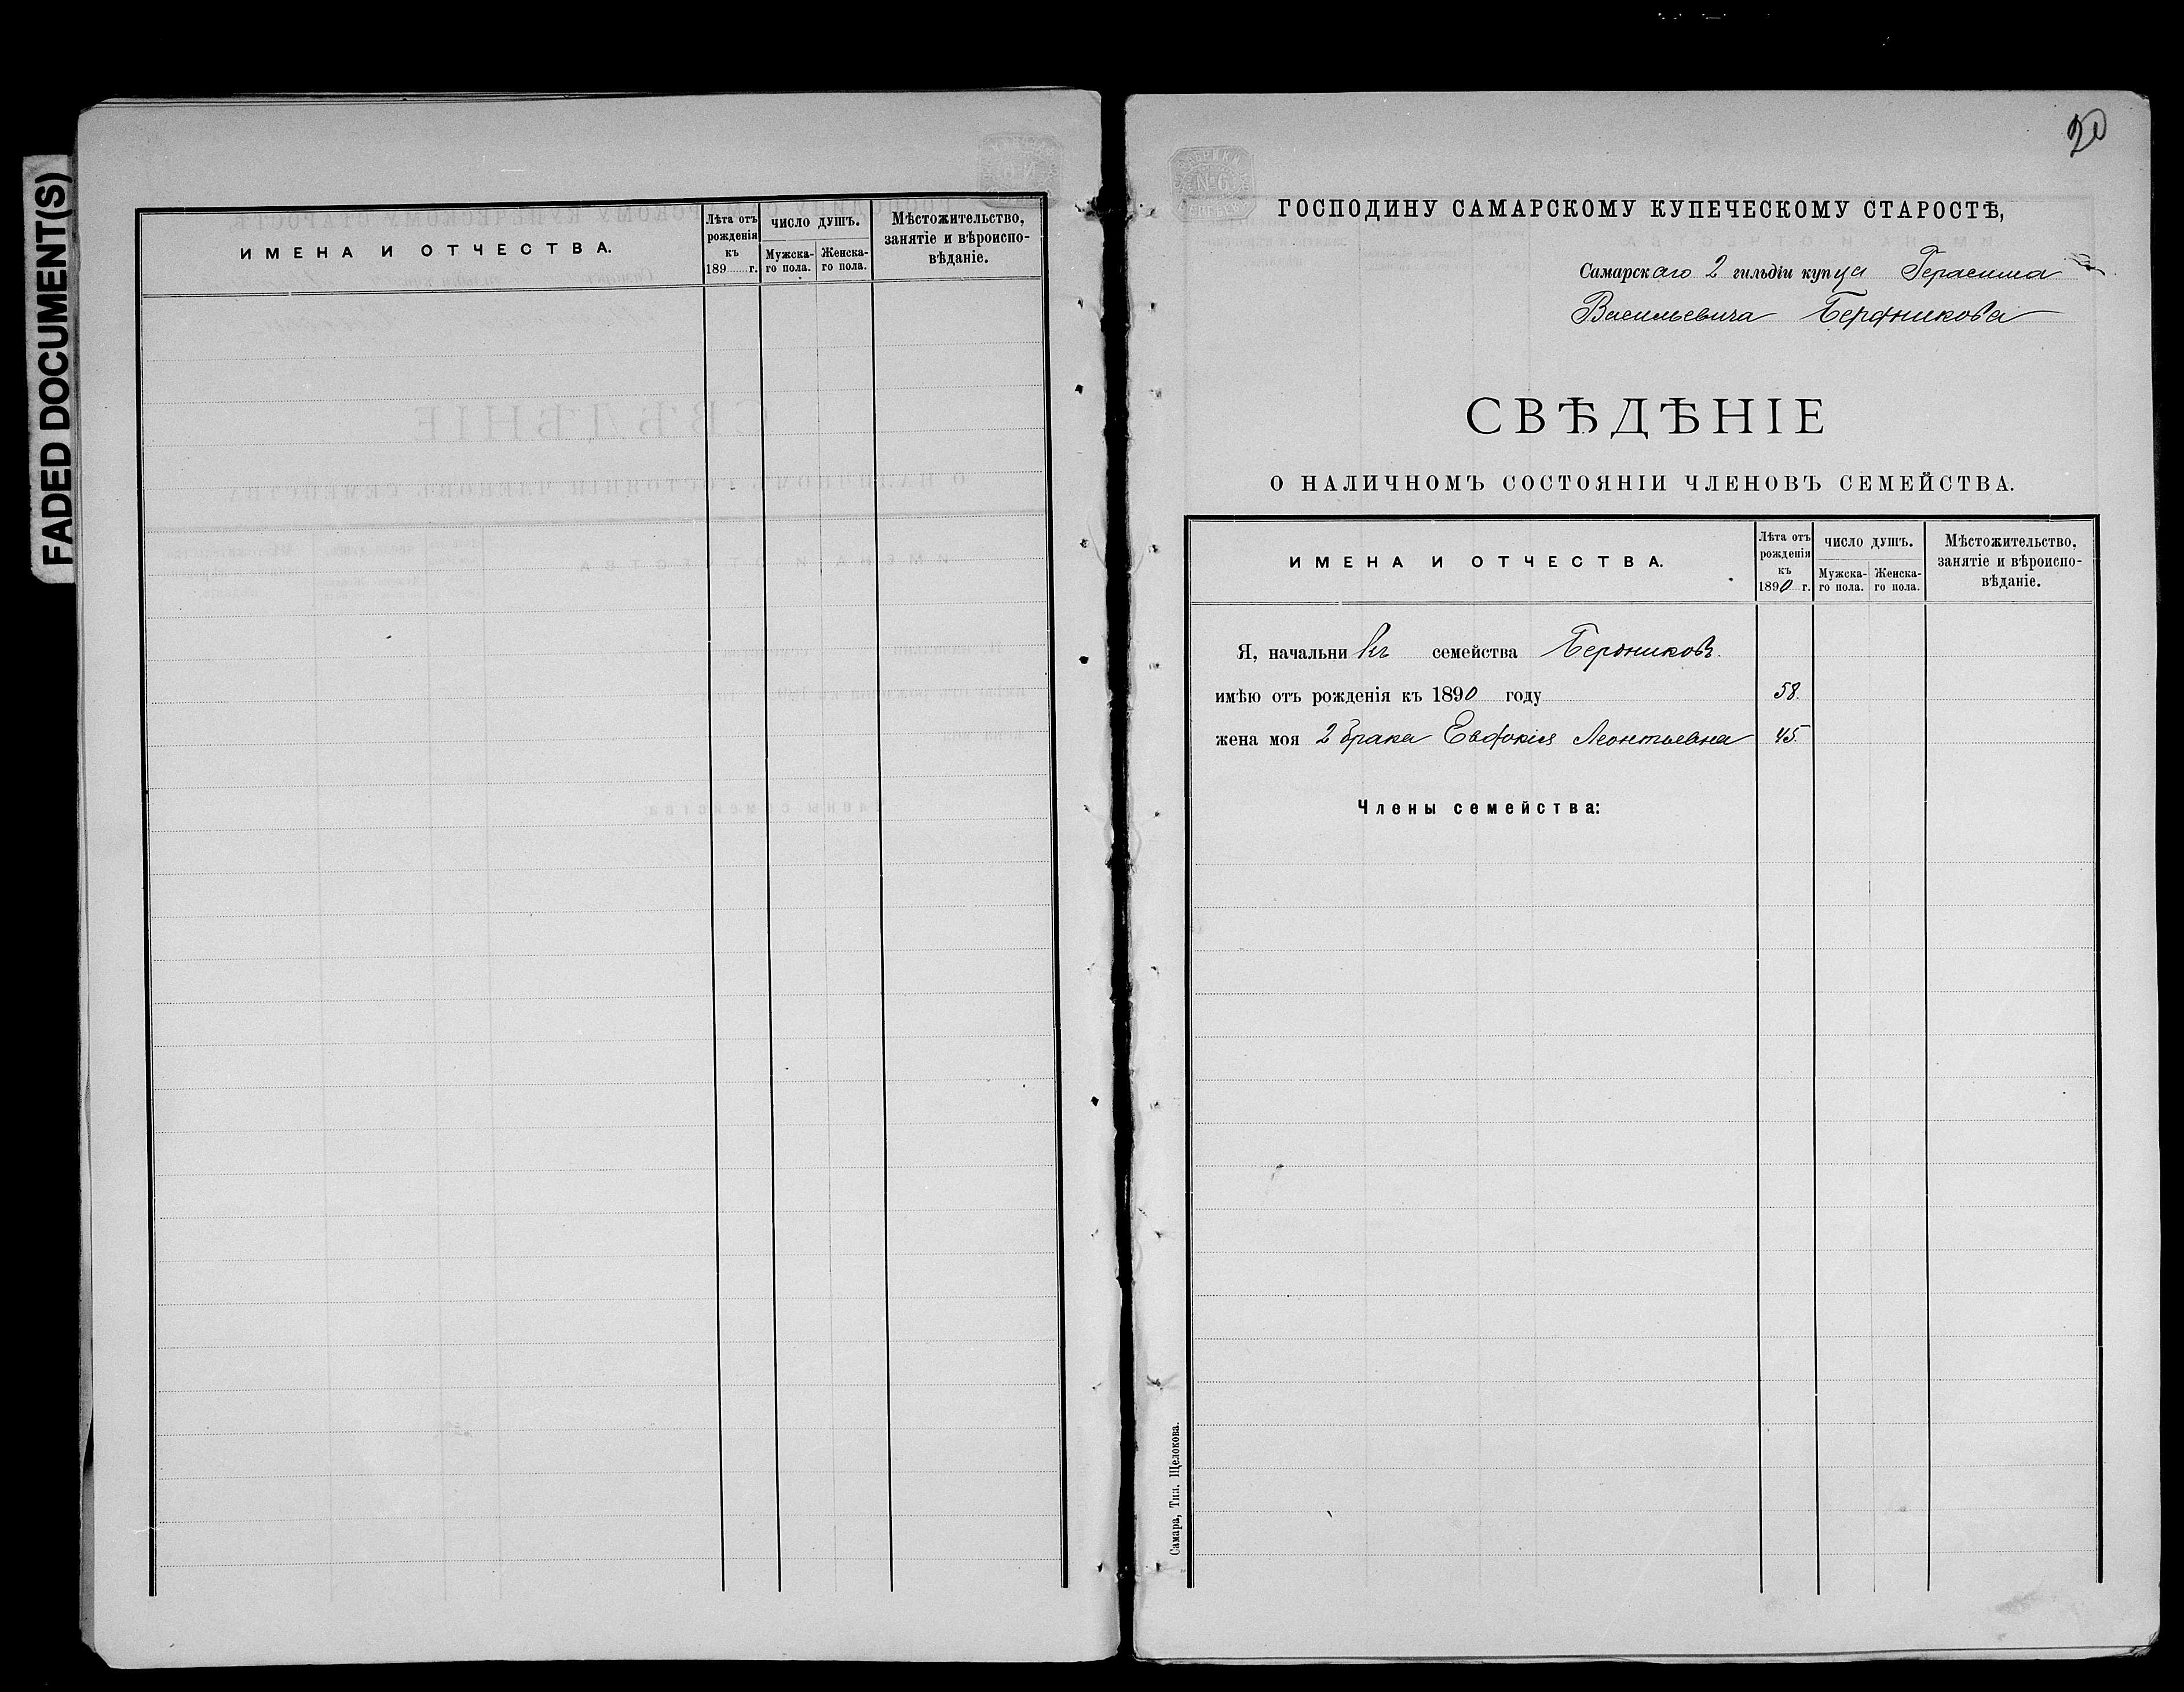 FADED DOCUMENT(S)
ИМЕНА И ОТЧЕСТВА.
Лѣта отъ рожденія къ 189 г.
ЧИСЛО ДУШЪ.
Мужска-го пола.
Женска-го пола.
Мѣстожительство, занятіе и вѣроиспо-вѣданіе.
20
№6
ГОСПОДИНУ САМАРСКОМУ КУПЕЧЕСКОМУ СТАРОСТѢ,
Самарскаго 2 гильдіи купца Герасима
Васильевича Бердникова
СВѢДѢНІЕ
О НАЛИЧНОМЪ СОСТОЯНІИ ЧЛЕНОВЪ СЕМЕЙСТВА.
ИМЕНА И ОТЧЕСТВА.
Лѣта отъ рожденія къ 1890 г.
ЧИСЛО ДУШЪ.
Мужска-го пола.
Женска-го пола.
Мѣстожительство, занятіе и вѣроиспо-вѣданіе.
Я, начальникъ семейства Бердниковъ.
имѣю отъ рожденія къ 1890 году 58.
жена моя 2 брака Евдокія Леонтьевна 45.
Члены семейства:
Самара, Тип. Щелокова.